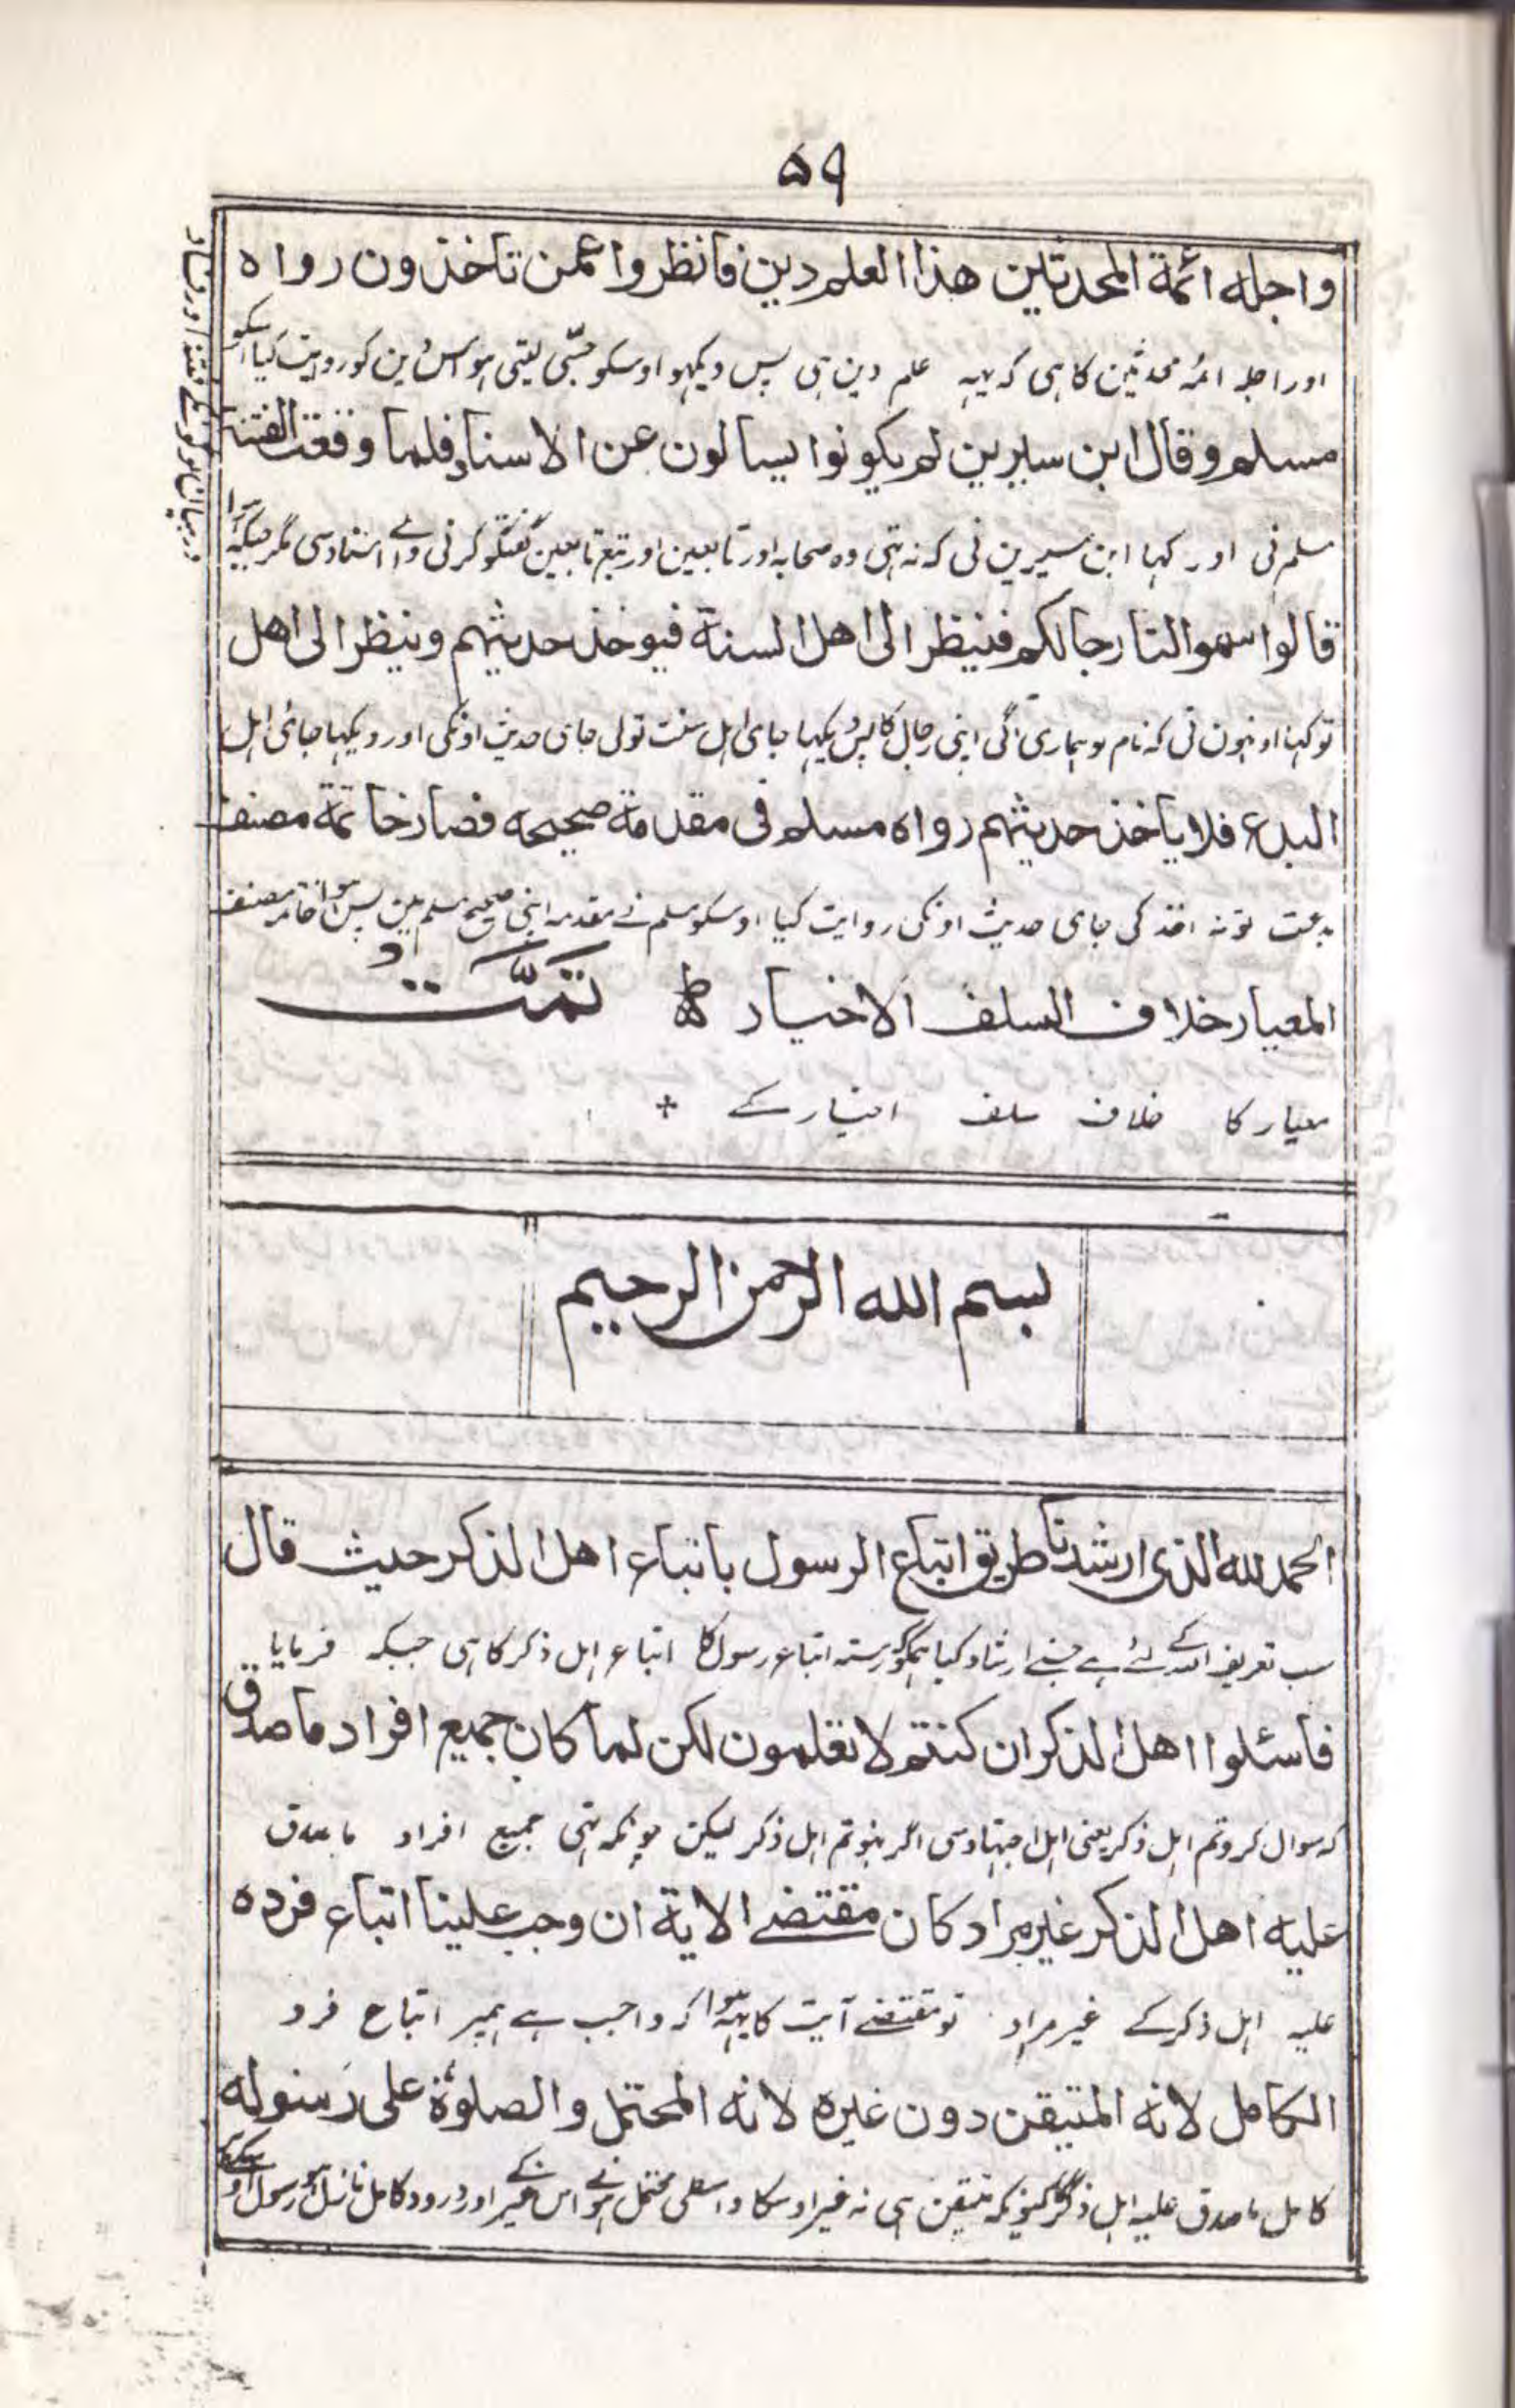 ۵۹
واجله ائمة المحدثين هذا العلم دين فانظروا عمن تاخذون رواه
اور اجلہ ائمہ محدثین کا ہی کہ یہہ علم دین ہی پس دیکہو اوسکو جسّی لیتی ہو اس دین کو روایت کیا اسکو
مسلم وقال ابن سيرين لم يكونوا يسالون عن الاسناد فلما وقعت الفتنة
مسلم نی اور کہا ابن سیرین نی کہ نہ تہی وہ صحابہ اور تابعین اور تبع تابعین گفتگو کرنی والے اسناد سی مگر جبکہ
قالوا سموا لنا رجالكم فينظر الى اهل السنة فيوخذ حديثهم وينظر الى اهل
تو کہا اونہون نی کہ نام لو ہماری آگی اپنی رجال کا پس دیکہا جای اہل سنت تو لی جای حدیث اونکی اور دیکہا جای اہل
البدع فلا ياخذ حديثهم رواه مسلم فى مقدمة صحيحه فصار خاتمة مصنف
بدعت تو نہ اخذ کی جای حدیث اونکی روایت کیا اوسکو مسلم نے مقدمہ اپنی صحیح مسلم مین پس ہوا خاتمہ مصنف
المعيار خلاف السلف الاخيار تمّت
معیار کا خلاف سلف اخیار کے +
درمیان لوگونکے فتنہ اور فساد
بسم الله الرحمن الرحيم
الحمد لله الذى ارشدنا طريق اتباع الرسول باتباع اهل الذكر حيث قال
سب تعریف اللہ کے لئے ہے جسنے ارشاد کیا ہمکو رستہ اتباع رسول کا اتباع اہل ذکر کا ہی جبکہ فرمایا
فاسئلوا اهل الذكر ان كنتم لا تعلمون لكن لما كان جميع افراد ما صدق
کہ سوال کرو تم اہل ذکر یعنی اہل اجتہاد سی اگر نہو تم اہل ذکر لیکن چونکہ تہی جمیع افراد ما صدق
عليه اهل الذكر غير مراد كان مقتضے الاية ان وجب علينا اتباع فرده
علیہ اہل ذکر کے غیر مراد تو مقتضے آیت کا یہہ ہوا کہ واجب ہے ہمپر اتباع فرد
الكامل لانه المتيقن دون غيره لانه المحتمل والصلوة على رسوله
کامل ما صدق علیہ اہل ذکر کا کیونکہ متیقن ہی نہ غیر اوسکا واسطی محتمل ہونے اس غیر کے اور درود کامل نازل ہو رسول